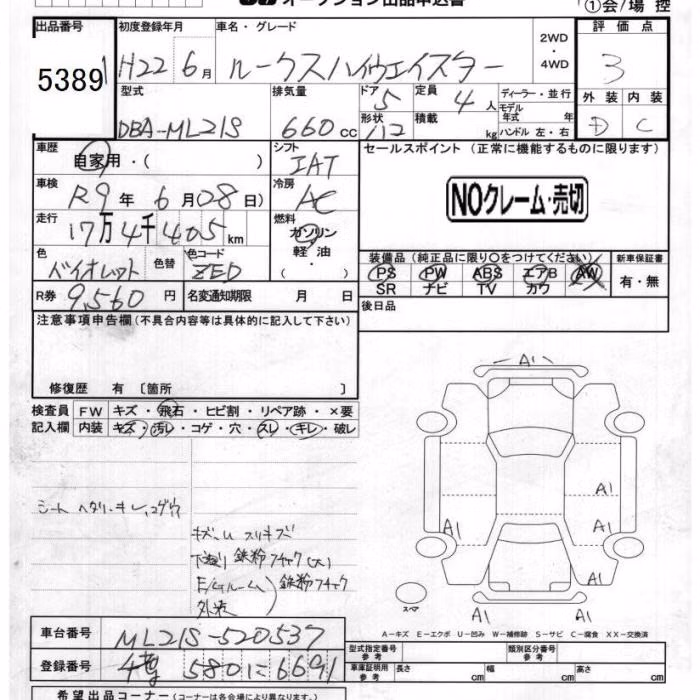 オークション出品申込書
①会/場 控
出品番号 初度登録年月 車名・グレード 2WD ・ 4WD 評価点
5389 H22 6月 ルークスハイウェイスター 3
型式 排気量 ドア 5 定員 4人 ディーラー・並行 外装 内装
DBA-ML21S 660cc 形状 積載 kg モデル年式 年式 ハンドル 左・右 D C
車歴 自家用・( ) シフト IAT セールスポイント (正常に機能するものに限ります)
車検 R9年 6月 28日) 冷房 AC NOクレーム・売切
走行 17万4千405km 燃料 ガソリン 軽油・( )
色 バイオレット 色替 色コード ZED 装備品 (純正品に限り○をつけてください) 新車保証書
PS PW ABS エアB AW 有・無
R券 9,560円 名変通知期限 月 日 SR ナビ TV カワ
注意事項申告欄 (不具合内容等は具体的に記入して下さい) 後日品
修復歴 有 〔箇所 〕
検査員 FW キズ・飛石・ヒビ割・リペア跡・×要
記入欄 内装 キズ・汚レ・コゲ・穴・スレ・キレ・破レ
A1
シート ヘタリ キレ コゲ穴
キズ スリキズ
下廻り 鉄粉フチャク(大)
E/Gルーム 鉄粉フチャク
外装
A1
A1 A1
A1
A1 A1
スペア
A-キズ E-エクボ U-凹み W-補修跡 S-サビ C-腐食 XX-交換済
車台番号 ML21S-520537 型式指定番号 参考 類別区分番号 参考
登録番号 5801 に 6691 車庫証明用 参考 長さ cm 幅 cm 高さ cm
希望出品コーナー (コーナーは各会場により異なります。)